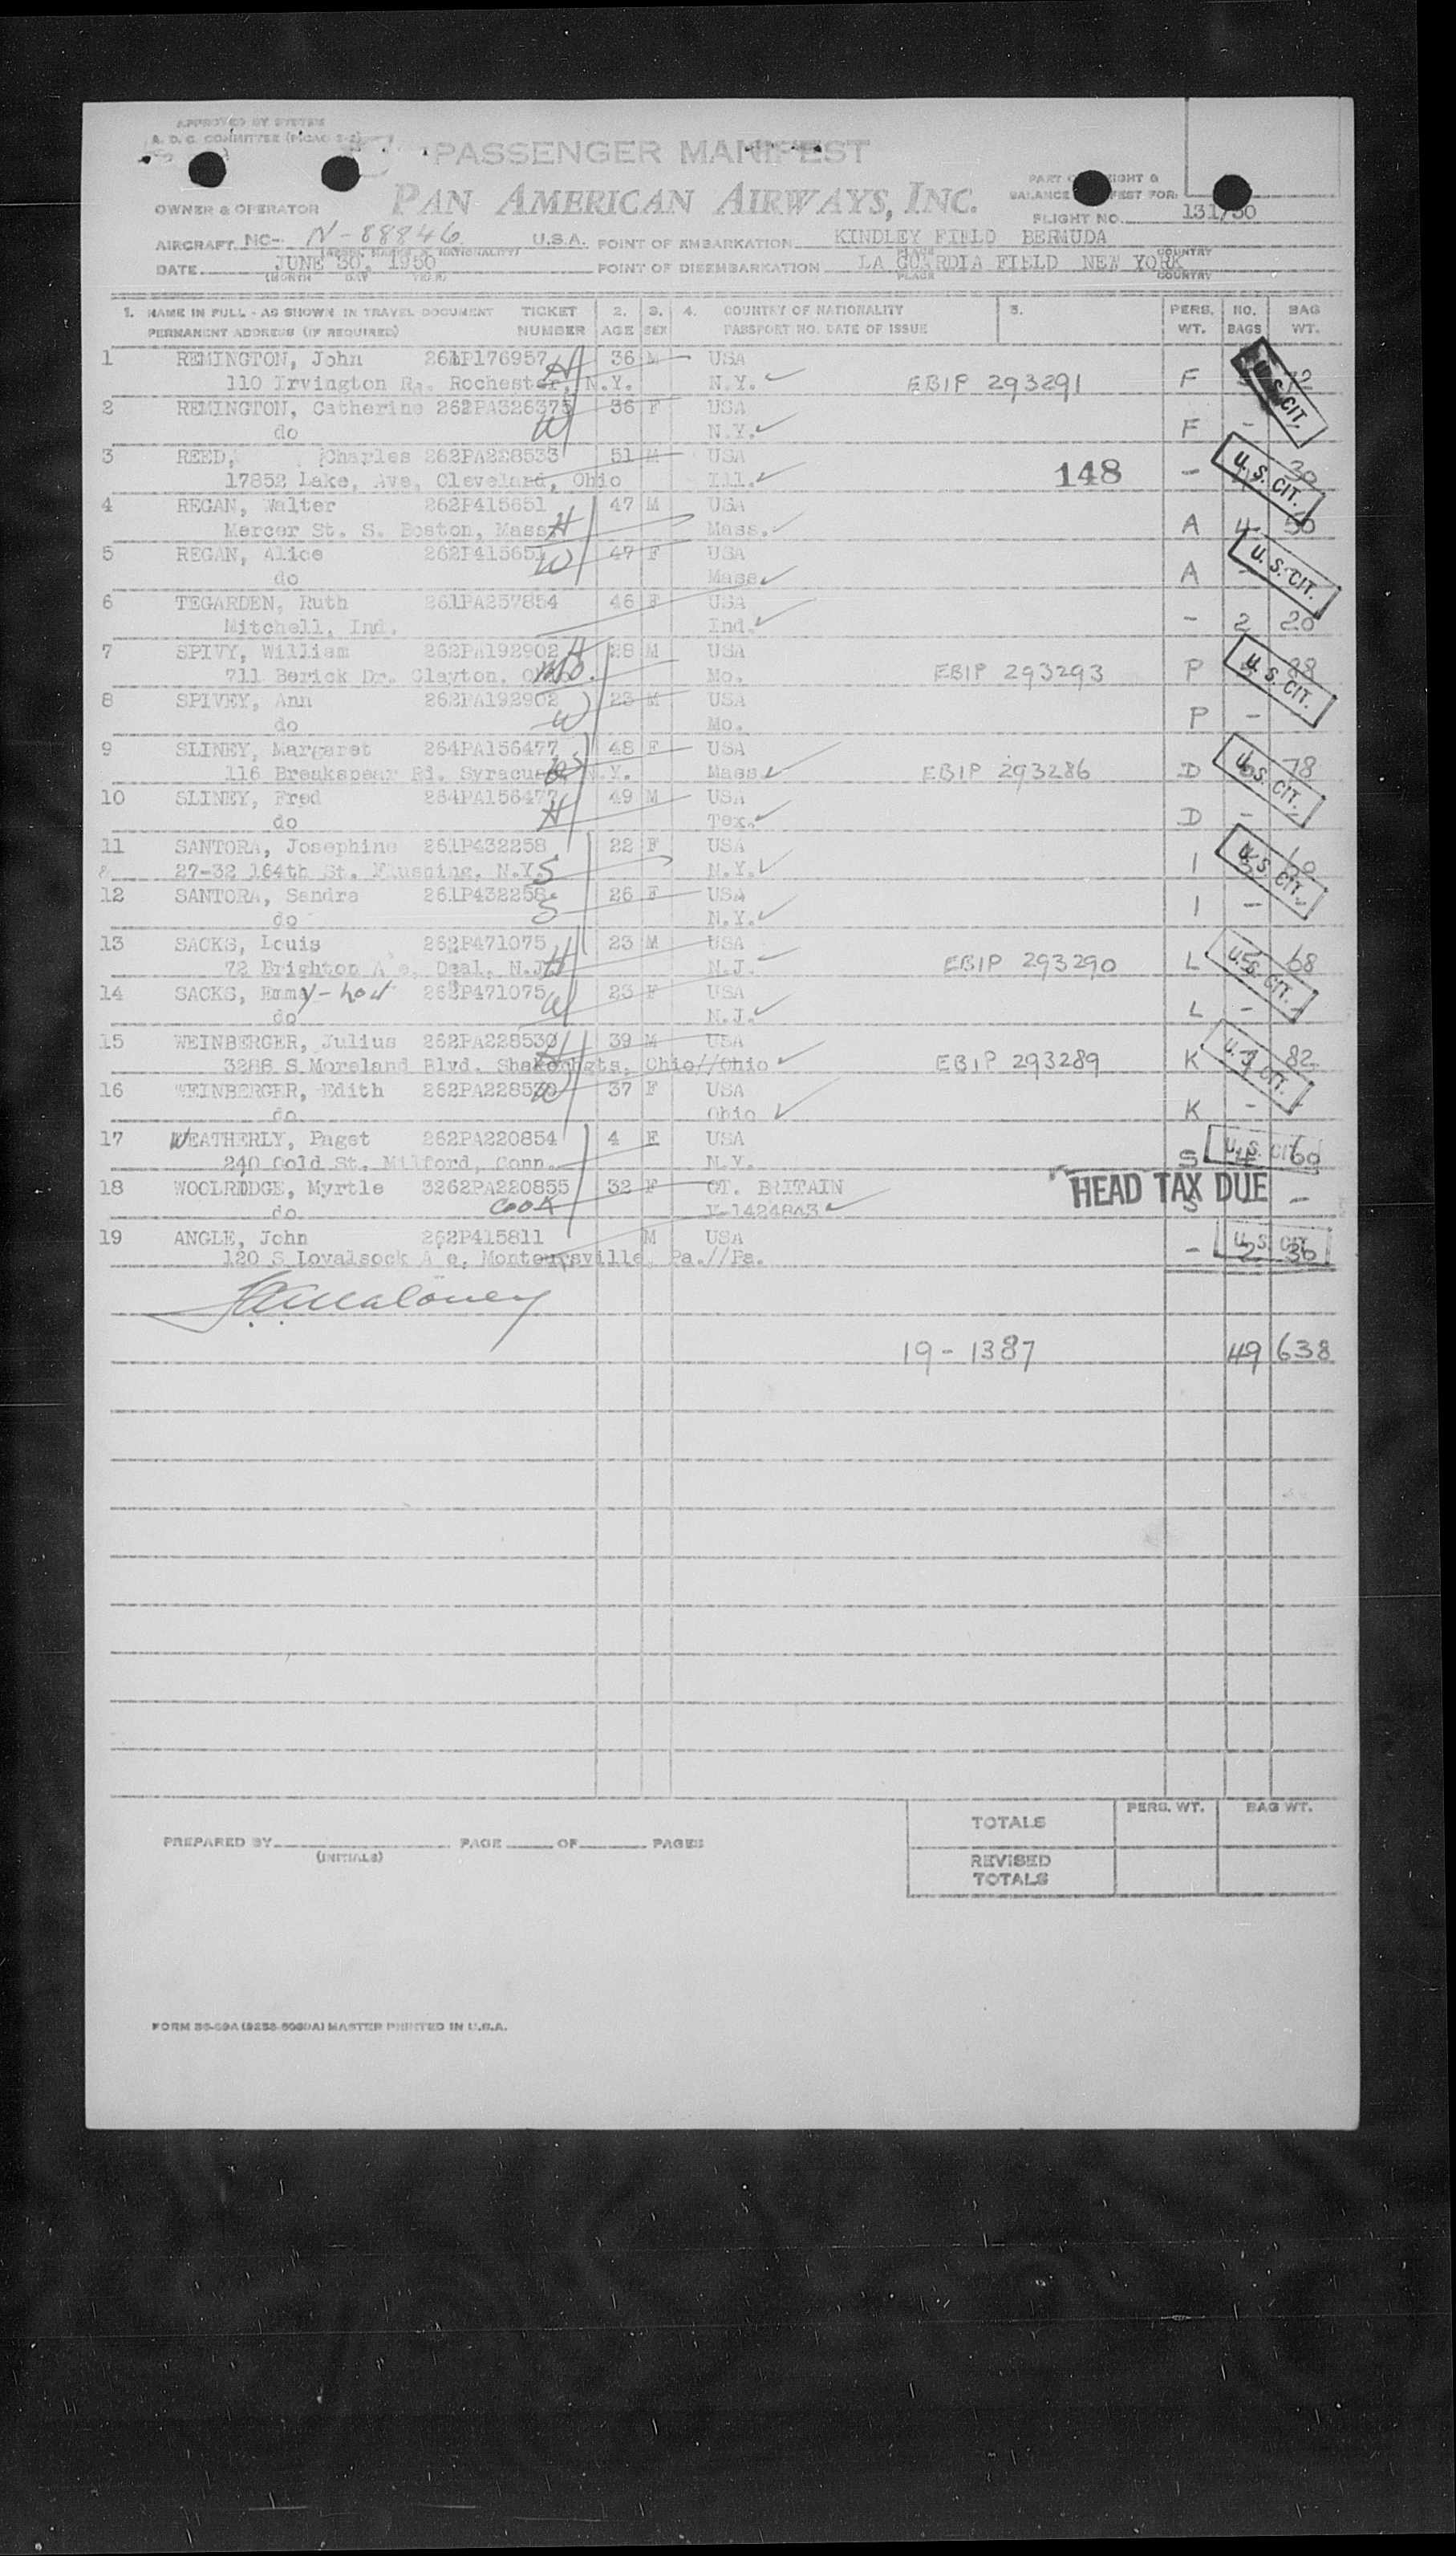 APPROVED BY SYSTEM
A. D. C. COMMITTEE (PICAO 2-2)
PASSENGER MANIFEST
PAN AMERICAN AIRWAYS, INC.
OWNER & OPERATOR
FLIGHT NO. 131/30
AIRCRAFT NC- N-88846 U.S.A. POINT OF EMBARKATION KINDLEY FIELD BERMUDA
DATE JUNE 30, 1950 POINT OF DISEMBARKATION LA GUARDIA FIELD NEW YORK
(MONTH DAY YEAR) PLACE COUNTRY
1. NAME IN FULL - AS SHOWN IN TRAVEL DOCUMENT TICKET 2. 3. 4. COUNTRY OF NATIONALITY 5. PERS. NO. BAG
PERMANENT ADDRESS (IF REQUIRED) NUMBER AGE SEX PASSPORT NO. DATE OF ISSUE WT. BAGS WT.
1 REMINGTON, John 261P176957 36 M USA
110 Irvington Rd. Rochester, N.Y. H N.Y. EBIP 293291 F U.S. CIT.
2 REMINGTON, Catherine 262PA326375 36 F USA
do W N.Y. F -
3 REED, Charles 262PA228533 51 M USA
17852 Lake, Ave, Cleveland, Ohio Ill. 148 - 30 U.S. CIT.
4 REGAN, Walter 262P415651 47 M USA
Mercer St. S. Boston, Mass H Mass. A 4 50
5 REGAN, Alice 262P415651 47 F USA
do W Mass A - U.S. CIT.
6 TEGARDEN, Ruth 261PA257854 46 F USA
Mitchell, Ind. Ind. - 2 20
7 SPIVY, William 262PA192902 H 28 M USA
711 Berick Dr. Clayton, Mo. Mo. EBIP 293293 P 88 U.S. CIT.
8 SPIVEY, Ann 262PA192902 23 M USA
do W Mo. P -
9 SLINEY, Margaret 264PA156477 48 F USA
116 Breakspear Rd. Syracuse N.Y. Mass EBIP 293286 D 78 U.S. CIT.
10 SLINEY, Fred 264PA156477 49 M USA
do H Tex. D -
11 SANTORA, Josephine 261P432258 22 F USA
& 27-32 164th St. Flushing, N.Y. S N.Y. I 60 U.S. CIT.
12 SANTORA, Sandra 261P432258 26 F USA
do S N.Y. I -
13 SACKS, Louis 262P471075 23 M USA
72 Brighton A e, Deal, N.J. H N.J. EBIP 293290 L 68 U.S. CIT.
14 SACKS, Emmy-Lou 262P471075 23 F USA
do W N.J. L -
15 WEINBERGER, Julius 262PA228530 39 M USA
3288 S Moreland Blvd. Shaker hgts, Ohio//Ohio EBIP 293289 K 82 U.S. CIT.
16 WEINBERGER, Edith 262PA228530 37 F USA
do W Ohio K -
17 WEATHERLY, Paget 262PA220854 4 F USA
240 Gold St. Milford, Conn. N.Y. S 4 60 U.S. CIT.
18 WOOLRIDGE, Myrtle 3262PA220855 32 F GT. BRITAIN HEAD TAX DUE
do Cook S -
19 ANGLE, John 262P415811 M USA
120 S Loyalsock A e, Montoursville, Pa.//Pa. - 2 30 U.S. CIT.
19 - 1387 49 638
TOTALS PERS. WT. BAG WT.
PREPARED BY PAGE OF PAGES
(INITIALS)
REVISED
TOTALS
MASTER PRINTED IN U.S.A.